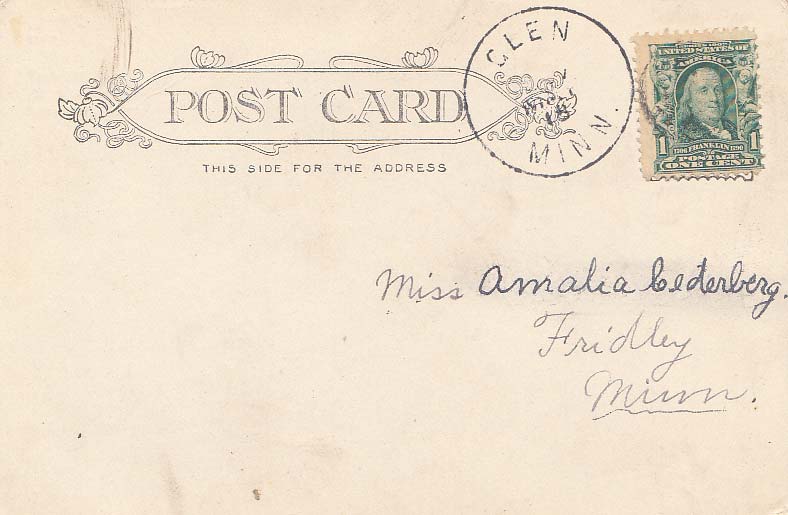 POST CARD
THIS SIDE FOR THE ADDRESS
GLEN
18
MINN.
UNITED STATES OF
AMERICA
1 1
FRANKLIN
POSTAGE
ONE CENT
Miss Amalia Cederberg.
Fridley
Minn.